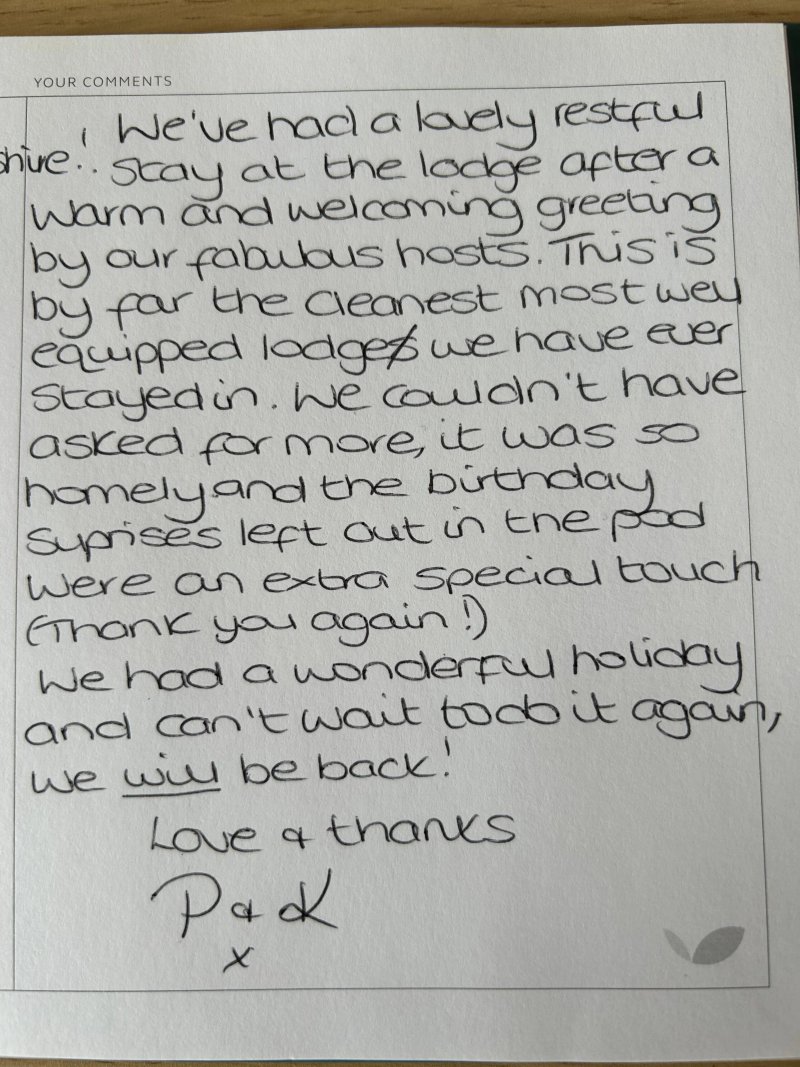 YOUR COMMENTS
! We've had a lovely restful
shire!. Stay at the lodge after a
warm and welcoming greeting
by our fabulous hosts. This is
by far the cleanest most well
equipped lodges we have ever
stayed in. We couldn't have
asked for more, it was so
homely and the birthday
suprises left out in the pod
were an extra special touch
(Thank you again!)
We had a wonderful holiday
and can't wait to do it again,
we will be back!
Love & thanks
P & K
x